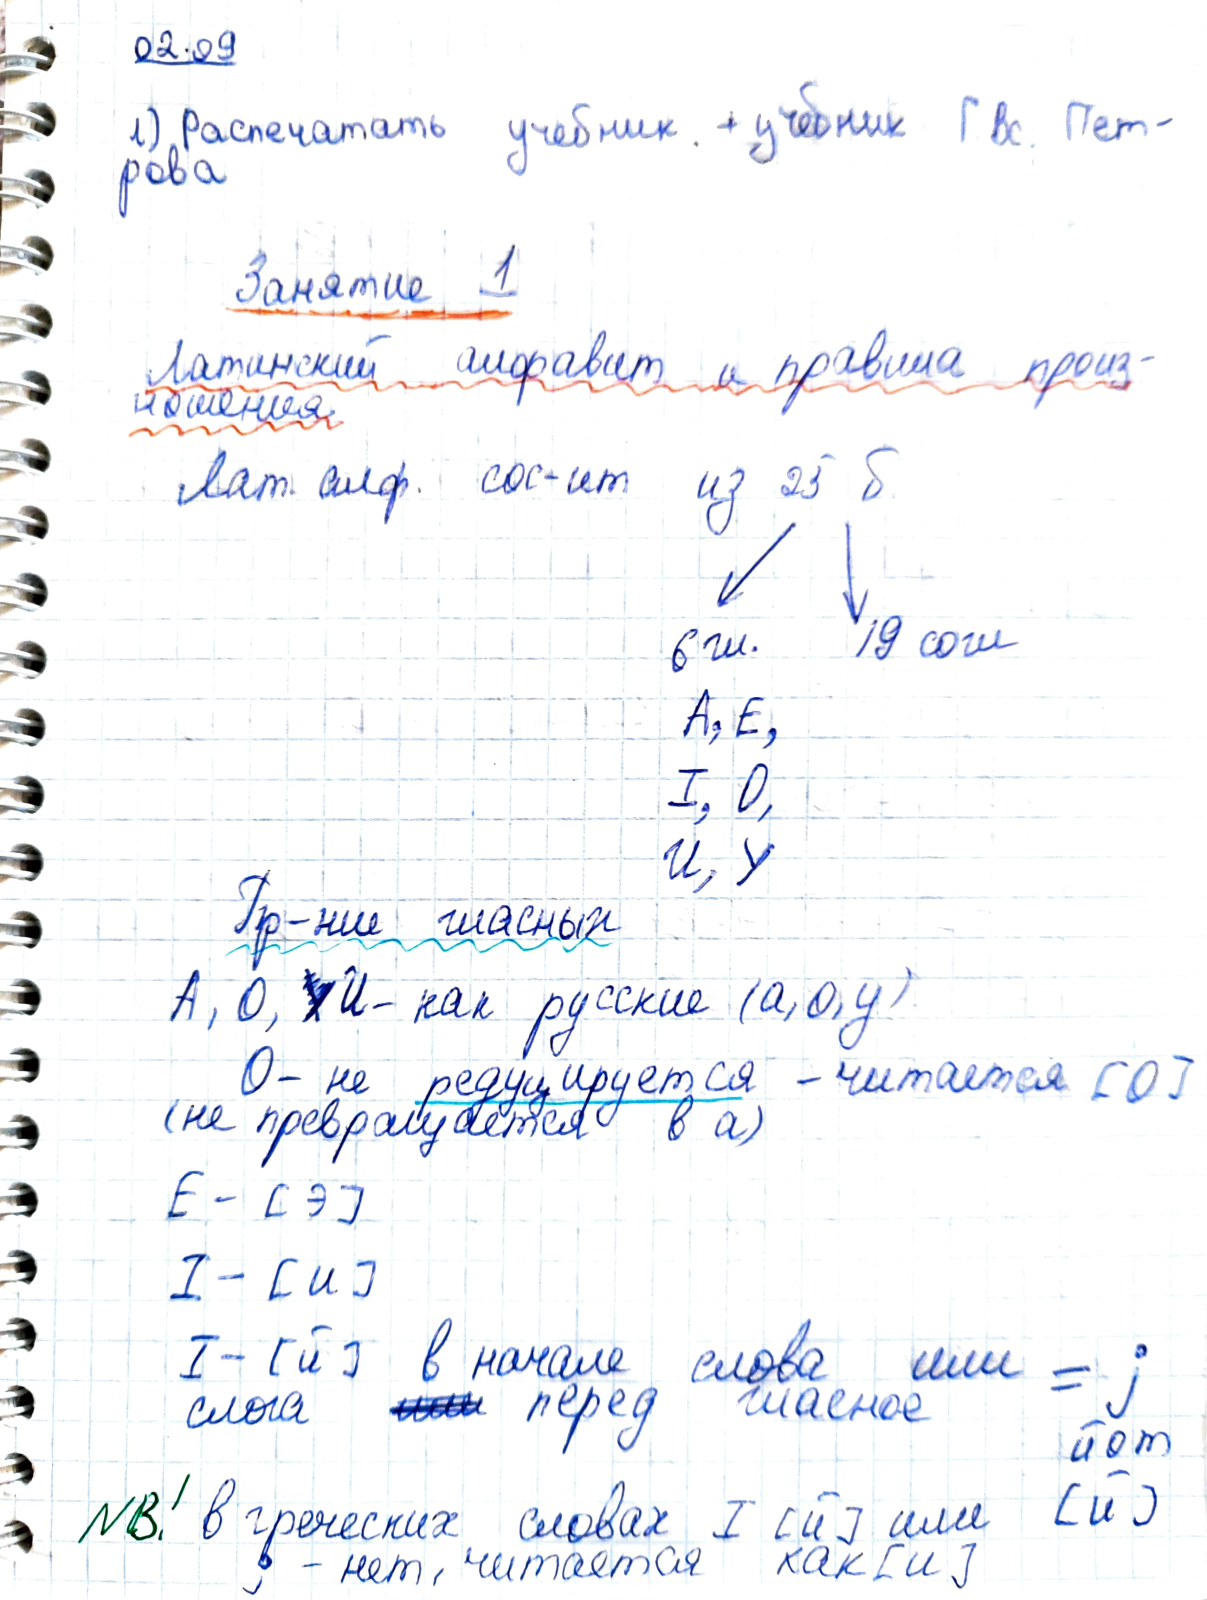 02.09
1) Распечатать учебник. + учебник Вс. Пет-
рова
Занятие 1
Латинский алфавит и правила произ-
ношения
Лат. алф. сос-ит из 25 б
6 гл. 19 согл
A, E,
I, O,
U, Y
Пр-ние гласных
A, O, U - как русские (а, о, у)
O - не редуцируется - читается [О]
(не превращается в а)
E - [э]
I - [и]
I - [й] в начале слова или = j
слога перед гласное
йот
NB! в греческих словах I [й] или [й]
j - нет, читается как [и]